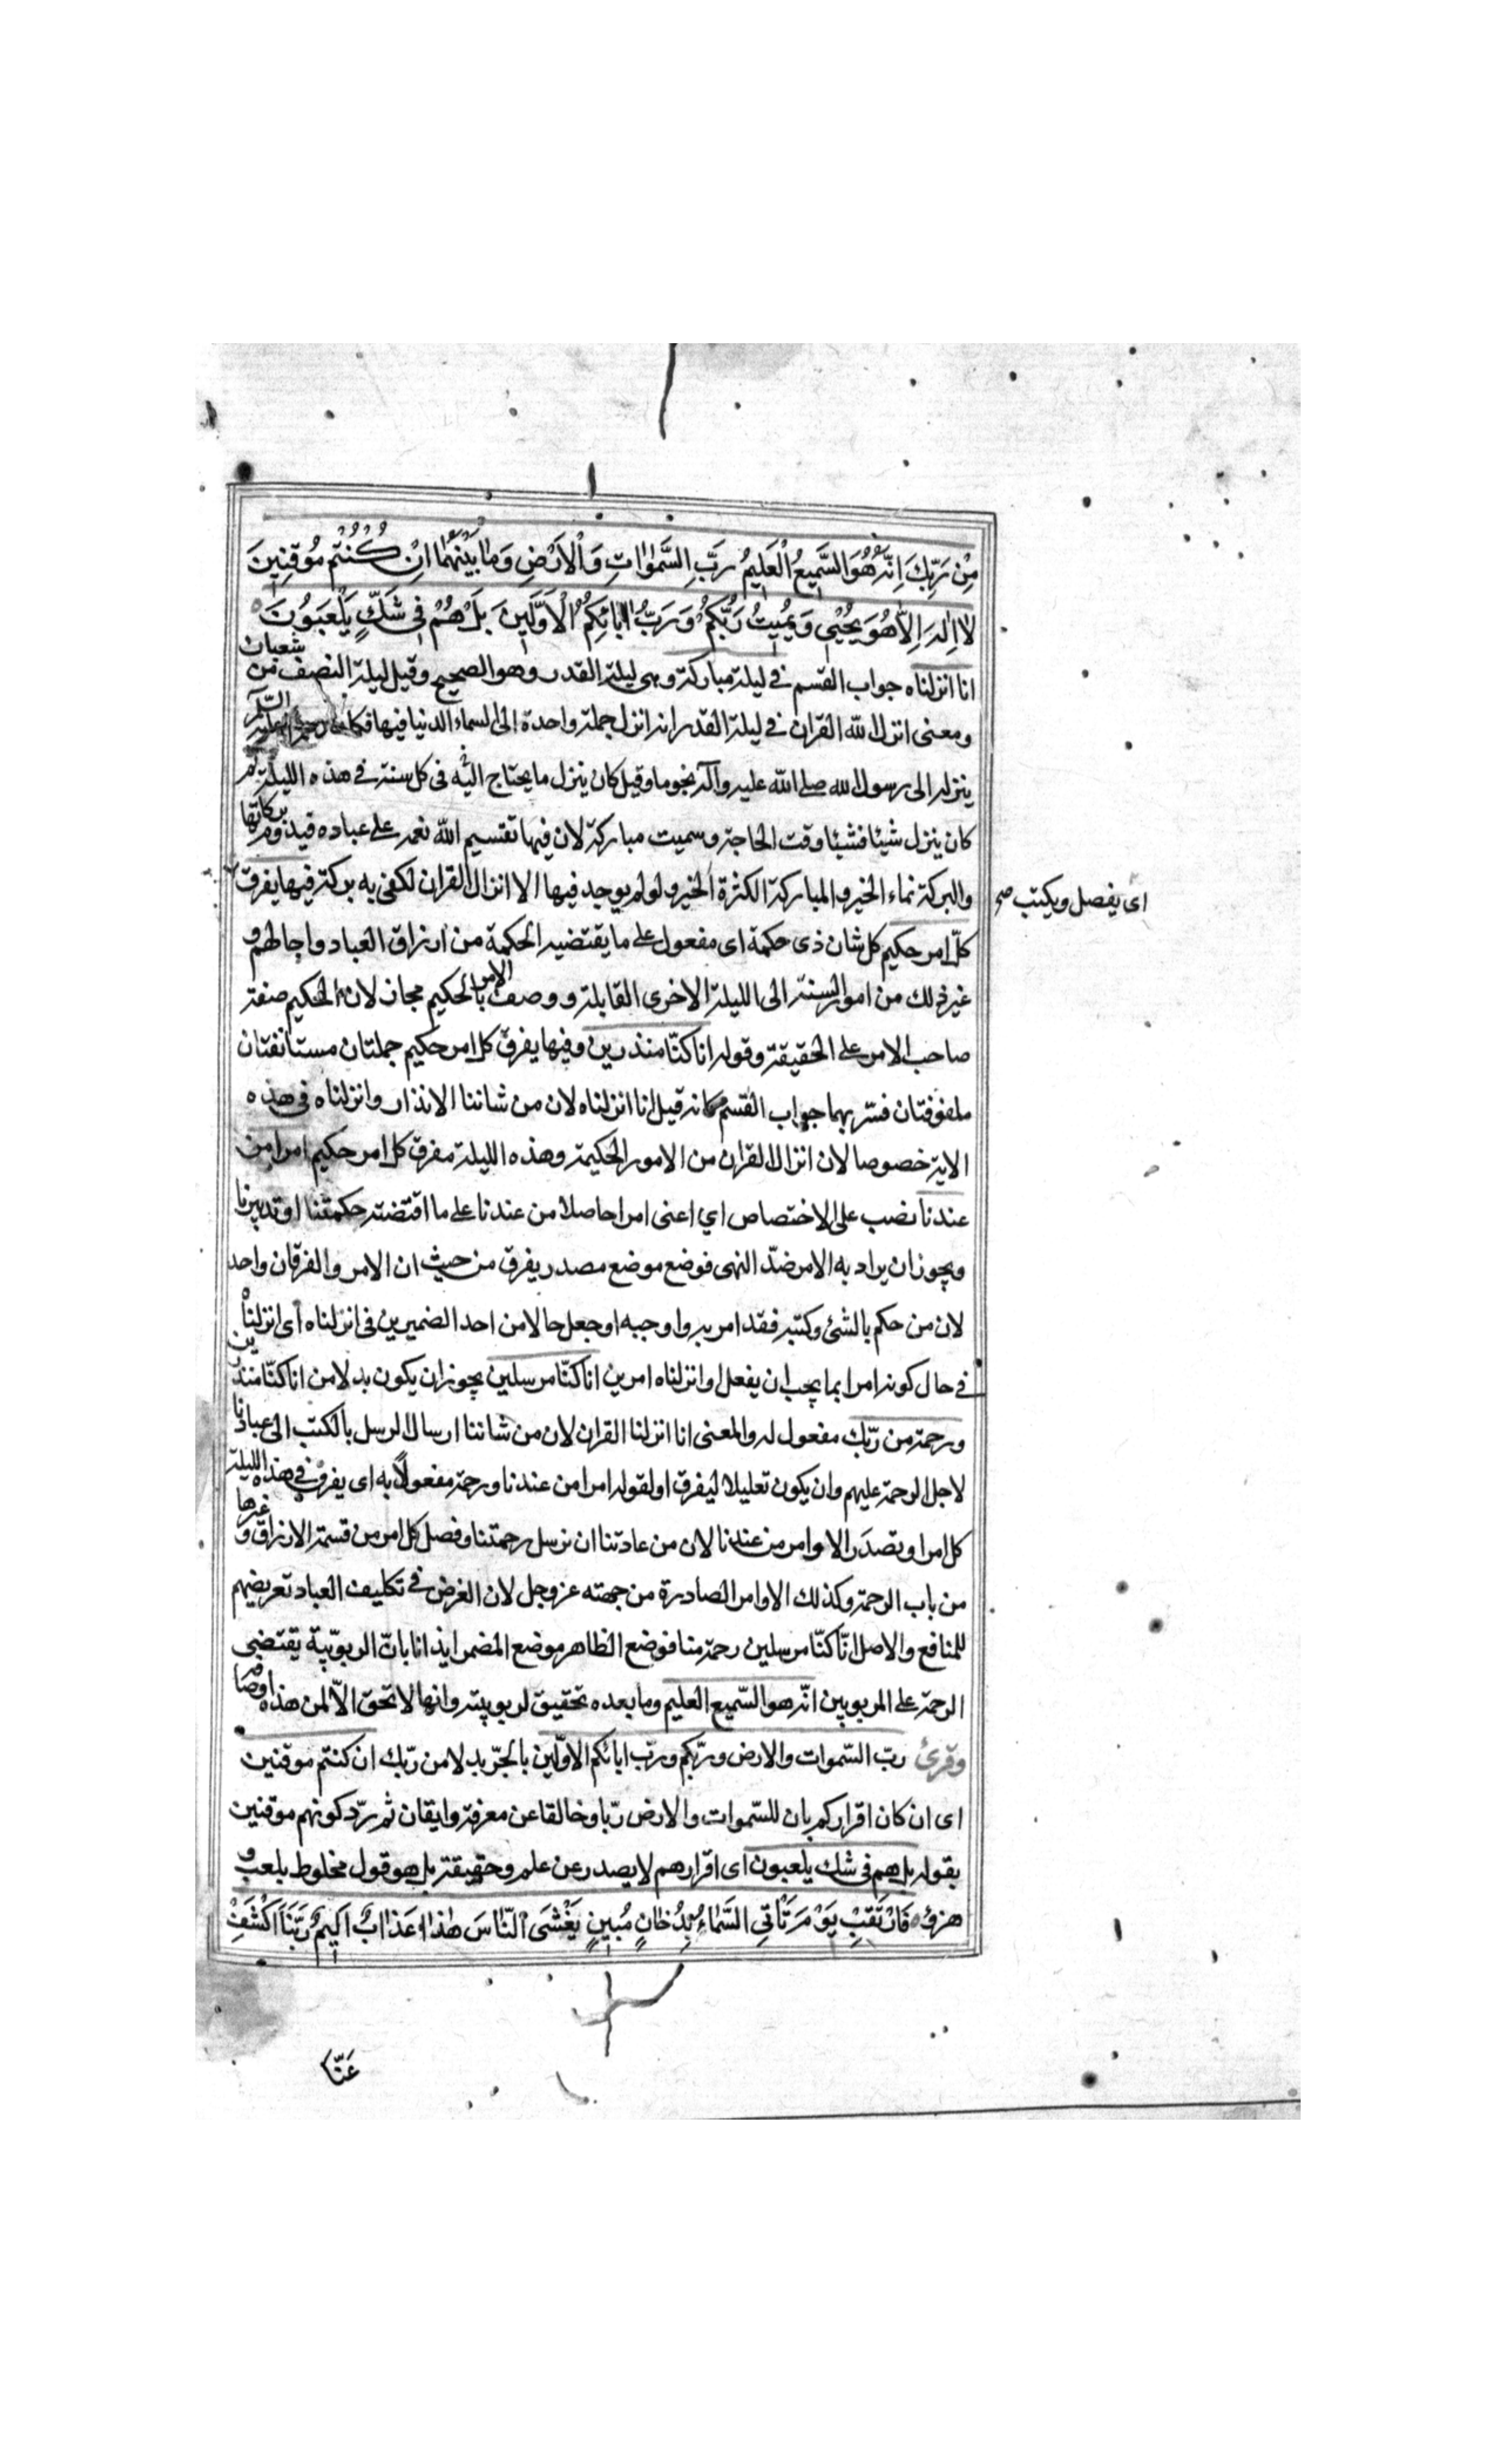 مِنْ رَبِّكَ اِنَّهُ هُوَ السَّمِيعُ الْعَلِيمُ رَبِّ السَّمٰوٰاتِ وَالْاَرْضِ وَمٰا بَيْنَهُمٰا اِنْ كُنْتُمْ مُوقِنِينَ
لٰا اِلٰهَ اِلّٰا هُوَ يُحْيِي وَيُمِيتُ رَبُّكُمْ وَرَبُّ اٰبائِكُمُ الْاَوَّلِينَ بَلْ هُمْ فِي شَكٍّ يَلْعَبُونَ
انا انزلناه جواب القسم في ليلة مباركة وهى ليلة القدر وهو الصحيح وقيل ليلة النصف من شعبان
ومعنى انزل الله القران في ليلة القدر انه انزل جملة واحدة الى السماء الدنيا فيها فكان
ينزله الى رسول الله صلى الله عليه وآله نجوما وقيل كان ينزل ما يحتاج اليه فى كل سنة في هذه الليلة ثم
كان ينزل شيئا فشيئا وقت الحاجة وسميت مباركة لان فيها تقسيم الله نعمه على عباده بركاتها
والبركة نماء الخير والمباركة الكثرة الخير ولو لم يوجد فيها الا انزال القران لكفى به بركة فيها يفرق
اى يفصل ويكتب صح
كلّ امر حكيم كل شان ذى حكمة اى مفعول على ما يقتضيه الحكمة من ارزاق العباد واجالهم و
غير ذلك من امور السنة الى الليلة الاخرى القابلة ووصف الامر بالحكيم مجاز لان الحكيم صفة
صاحب الامر على الحقيقة وقوله انا كنّا منذرين وفيها يفرق كل امر حكيم جملتان مستانفتان
ملفوفتان فسّر بهما جواب القسم كانه قيل انا انزلناه لان من شاننا الانذار وانزلناه فى هذه
الاية خصوصا لان انزال القران من الامور الحكيمة وهذه الليلة مفرق كل امر حكيم امرا من
عندنا نصب على الاختصاص اي اعنى امرا حاصلا من عندنا على ما اقتضته حكمتنا او تدبيرنا
ويجوز ان يراد به الامر ضدّ النهى فوضع موضع مصدر يفرق من حيث ان الامر والفرقان واحد
لان من حكم بالشئ وكتبه فقد امر به واوجبه او جعل حالا من احد الضميرين فى انزلناه اى انزلناه
في حال كونه امرا بما يجب ان يفعل او انزلناه امرين انا كنّا مرسلين يجوز ان يكون بدلا من انا كنّا منذرين
ورحمة من ربّك مفعول له والمعنى انا انزلنا القران لان من شاننا ارسال الرسل بالكتب الى عبادنا
لاجل الرحمة عليهم وان يكون تعليلا ليفرق او لقوله امرا من عندنا ورحمة مفعولاً به اى يفرق في هذه الليلة
كل امر او تصدر الاوامر من عندنا لان من عادتنا ان نرسل رحمتنا وفصل كل امر من قسمة الارزاق وغيرها
من باب الرحمة وكذلك الاوامر الصادرة من جهته عز وجل لان الغرض في تكليف العباد تعريضهم
للمنافع والاصل انّا كنّا مرسلين رحمة منا فوضع الظاهر موضع المضمر ايذانا بانّ الربوبيّة يقتضي
الرحمة على المربوبين انّه هو السّميع العليم وما بعده تحقيق لربوبيته وانها لا تحق الّا لمن هذه اوصافه
وقرئ ربّ السّموات والارض وربّكم وربّ ابائكم الاوّلين بالجّر بدلا من ربّك ان كنتم موقنين
اى ان كان اقراركم بان للسّموات والارض ربّا وخالقا عن معرفة وايقان ثم ردّ كونهم موقنين
بقوله بل هم فى شك يلعبون اى اقرارهم لا يصدر عن علم وحقيقة بل هو قول مخلوط بلعب و
هزؤ فَارْتَقِبْ يَوْمَ تَأْتِي السَّمٰاءُ بِدُخٰانٍ مُبِينٍ يَغْشَى النّٰاسَ هٰذٰا عَذٰابٌ اَلِيمٌ رَبَّنَا اكْشِفْ
عَنّٰا